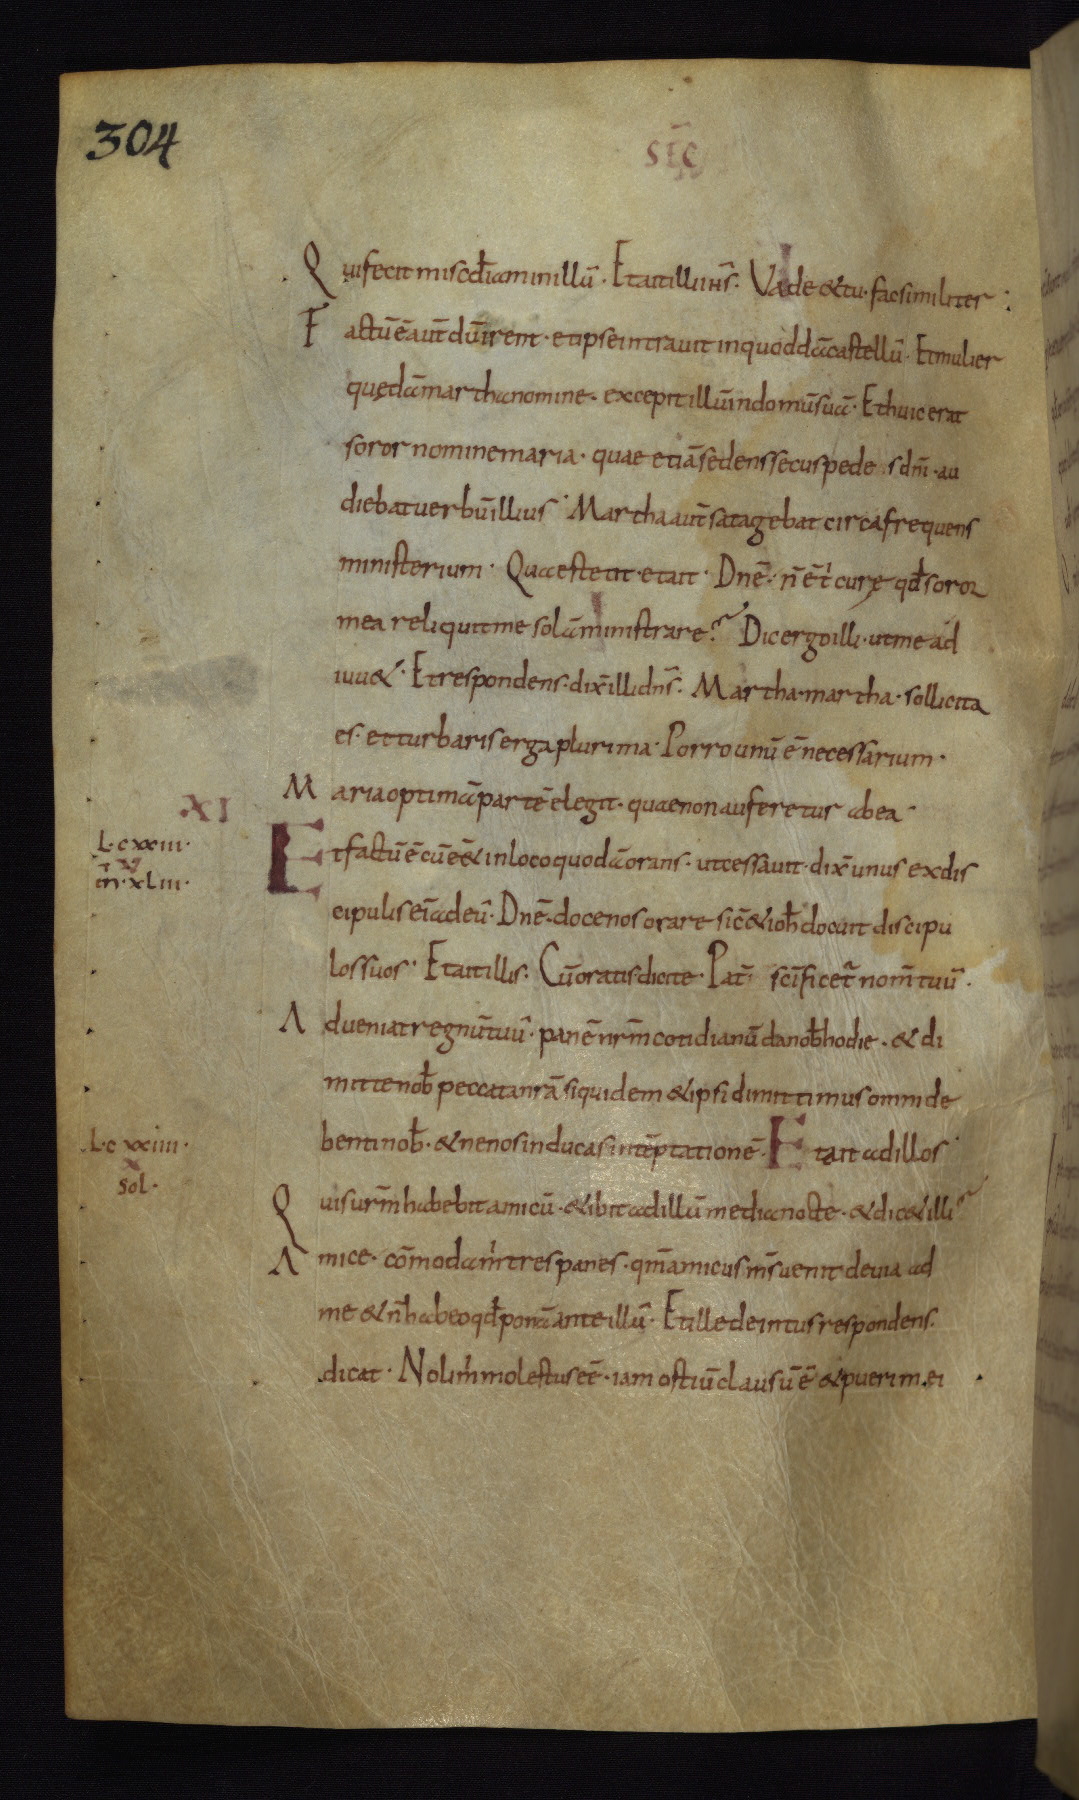 304
SEC
Qui fecit miscđiam in illū. Et ait illi ih̅s. Vade & tu fac similiter:
Factū ē aut̄ dū irent. et ipse intravit in quoddā castellū. Et mulier
quędā martha nomine. excepit illū in domū suā. Et huic erat
soror nomine maria. quae etiā sedens secus pedes dn̄i. au
diebat verbū illius. Martha aut̄ satagebat circa frequens
ministerium. Quae stetit et ait. Dn̄e. n̄ ē t̄ curę qđ soror
mea reliquit me solā ministrare? Dic ergo illi. ut me ad
iuu&. Et respondens. dix̄ illi dn̄s. Martha martha. sollicita
es. et turbaris erga plurima. Porro unū ē necessarium.
Maria optimā partē elegit. quae non auferetur ab ea.
XI
L. cxxiii.
m̄. xLiii.
Et factū ē cū eēt in loco quodā orans. ut cessavit. dix̄ unus ex dis
cipulis ei᷈ ad eū. Dn̄e. doce nos orare sic̄ & ioh̄ docuit discipu
los suos. Et ait illis. Cū oratis. dicite. Pat̄ sc̄ificet᷈ nom̄ tuū.
Adueniat regnū tuū. panē nr̄m cotidianū da nob̄ hodie. & di
mitte nob̄ peccata nr̄a siquidem & ipsi dimittimus omni de
benti nob̄. & ne nos inducas in tēptationē. Et ait ad illos
L. cxxiiii.
X
Sol.
Quis ur̄m habebit amicū. & ibit ad illū media nocte. & dic& illi
Amice. cōmoda m̄ tres panes. qm̄ amicus m̄s venit de uia ad
me & n̄ habeo qđ ponā ante illū. Et ille de intus respondens.
dicat. Noli m̄ molestus eē. iam ostiū clausū ē & pueri mei